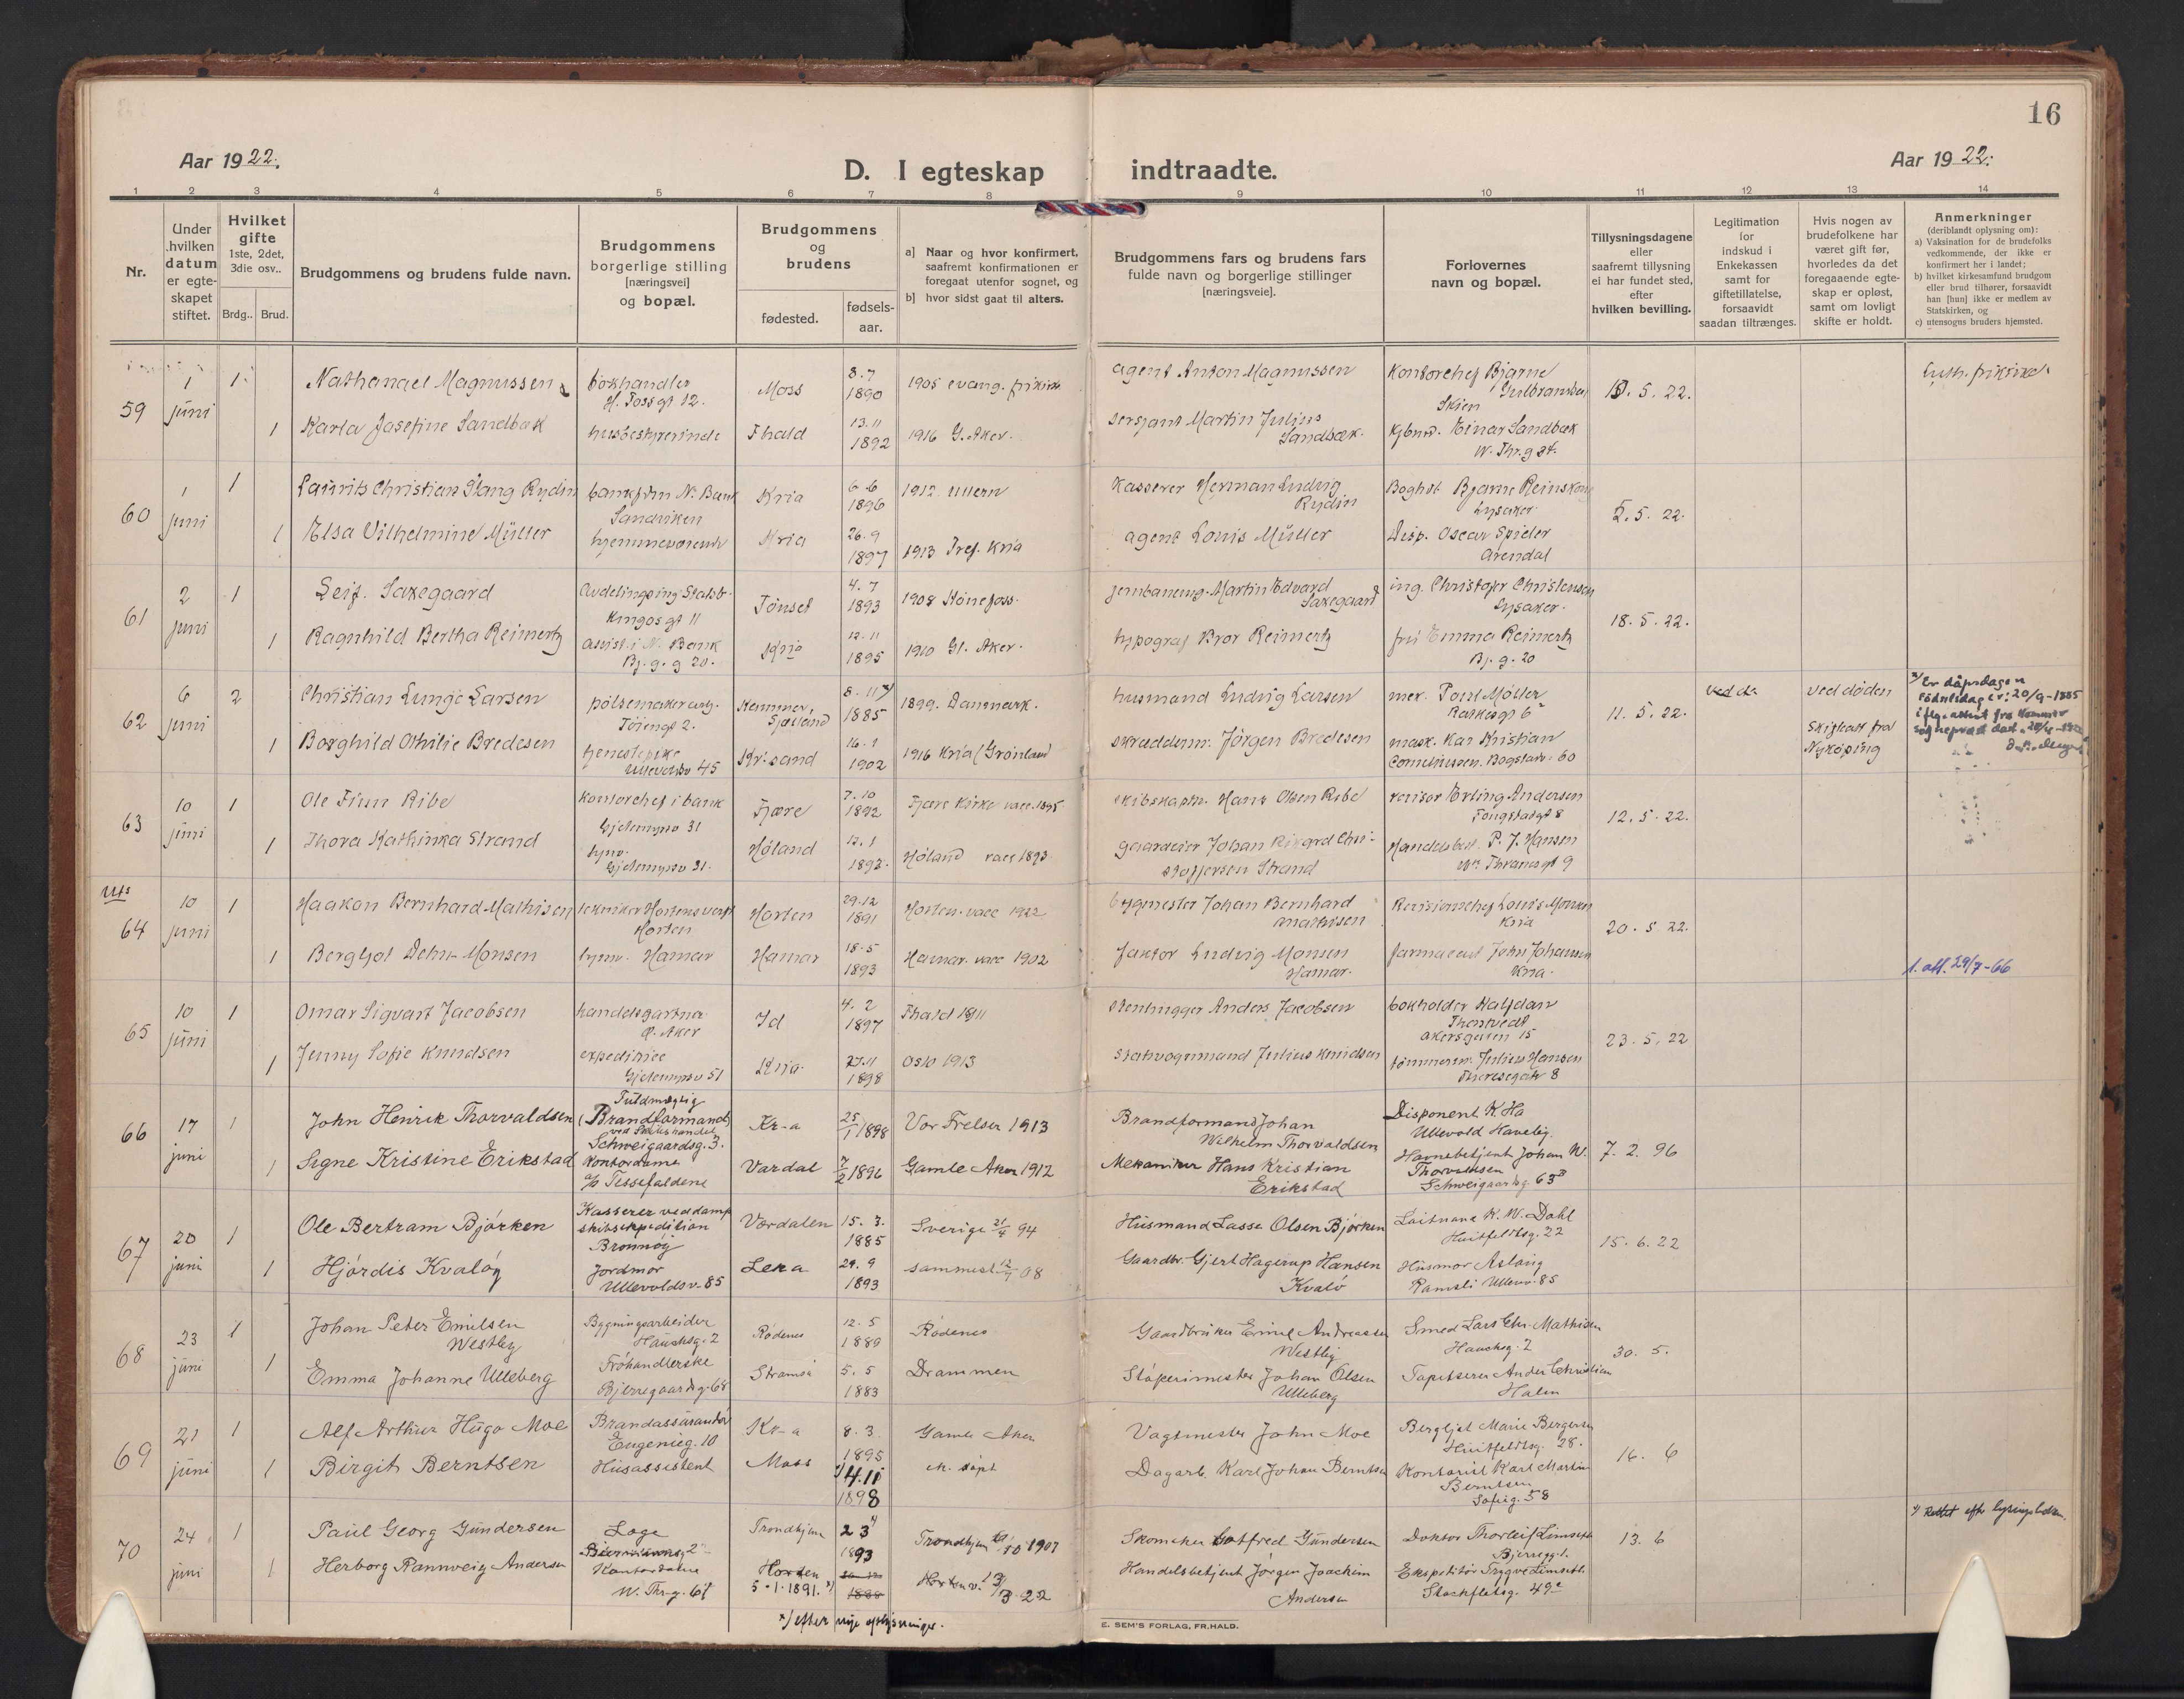 16
Aar 1922.
D. I egteskap indtraadte.
Aar 1922.
1 2 3 4 5 6 7 8 9 10 11 12 13 14
Nr.
Under hvilken datum er egteskapet stiftet.
Hvilket gifte 1ste, 2det, 3die osv..
Brdg.. Brud.
Brudgommens og brudens fulde navn.
Brudgommens borgerlige stilling [næringsvei] og bopæl.
Brudgommens og brudens
fødested. fødsels-aar.
a] Naar og hvor konfirmert, saafremt konfirmationen er foregaat utenfor sognet, og
b] hvor sidst gaat til alters.
Brudgommens fars og brudens fars fulde navn og borgerlige stillinger [næringsveie].
Forlovernes navn og bopæl.
Tillysningsdagene eller saafremt tillysning ei har fundet sted, efter hvilken bevilling.
Legitimation for indskud i Enkekassen samt for giftetillatelse, forsaavidt saadan tiltrænges.
Hvis nogen av brudefolkene har været gift før, hvorledes da det foregaaende egteskap er opløst, samt om lovligt skifte er holdt.
Anmerkninger
(deriblandt oplysning om):
a) Vaksination for de brudefolks vedkommende, der ikke er konfirmert her i landet;
b) hvilket kirkesamfund brudgom eller brud tilhører, forsaavidt han [hun] ikke er medlem av Statskirken, og
c) utensogns bruders hjemsted.
59 1 juni 1 Nathanael Magnussen bokhandler H. Foss gt 12. Moss 8.7 1890 1905 evang. frikirke agent Anton Magnussen Kontorchef Bjarne Gulbrandsen Skien 10.5.22. Luth. frikirke.
1 Karla Josefine Sandbæk husbestyrerinde Fhald 13.11 1892 1916 G. Aker. sersjant Martin Julius Sandbæk. Kjbmd. Einar Sandbæk W. Thr.g 84.
60 1 juni 1 Laurits Christian Stang Rydin bankfdm N. Bank Sandviken Kria 6.6 1896 1912 Ullern Kasserer Herman Ludvig Rydin Boghol. Bjarne Reinskou Lysaker. 5.5.22.
1 Elsa Vilhelmine Müller hjemmeværende Kria 26.9 1897 1913 Tref. Kria agent Louis Müller Disp. Oscar Spieler Arendal
61 2 juni 1 Leif Saxegaard Avdelingsing. Statsb. Kingos gt 11 Tönset 4.7 1893 1908 Hönefoss. jernbaneing. Martin Edvard Saxegaard ing. Christofer Christensen Lysaker. 18.5.22.
1 Ragnhild Bertha Reimertz assist. i N. Bank Bj.g.g 20. Kria 12.11 1895 1910 Gl. Aker. typograf Bror Reimertz frú Emma Reimertz Bj.g.20
62 6 juni 2 Christian Lunge Larsen pölsemaker Töiengt 2. Kemmer, Sjælland 8.11 x) 1885 1899. Danmark. husmand Ludvig Larsen mek. Poul Möller 11.5.22. ved dø ved döden Skifteatt fra Nyköping
x) Er dåpsdagen
Födselsdag er: 20/9-1885
iflg. attest fra Kommer
1 Borghild Othilie Bredesen tjenestepike Ullevoldsv 45 Kr.sand 16.1 1902 1916 Kria (Grönland) skreddermr. Jörgen Bredesen mask. Kar Kristian Corneliussen. Bogstadv. 60
63 10 juni 1 Ole Finn Ribe Kontorchef i bank Gjetemyrsv 31 Fjære 7.10 1892 Fjære Kirke vacc. 1895 skibskaptn. Hans Olsen Ribe revisor Erling Andersen Fougstadgt 8 12.5.22.
1 Thora Kathinka Strand hjmv. Gjetemyrsv 31. Höland 12.1 1892. Höland vacc 1893 gaardeier Johan Rikard Christoffersen Strand Handelsbet. P. J. Hansen Wm Thranesgt 9
64 10 juni 1 Haakon Bernhard Mathisen tekniker Hortens verft Horten Horten 29.12 1891 Horten. vacc 1922 bygmester Johan Bernhard Mathisen Revisionschef Louis Monsen Kria 20.5.22.
1 Bergljot Dehn Monsen hjmv. Hamar Hamar 18.5 1893 Hamar. vacc 1902 faktor Ludvig Monsen Hamar. farmaceut John Johansen Kria.
1. att. 29/7-66
65 10 juni 1 Omar Sigvart Jacobsen handelsgartner Ö. Aker Id 4.2 1897 Fhald 1911 Stenhugger Anders Jacobsen bokholder Halfdan Thostvedt akersgaten 15 23.5.22
1 Jenny Sofie Knudsen expeditrice Gjetemyrsv 51 Kria. 27.11 1898 Oslo 1913 Stalvognmand Julius Knudsen tömmerm. Julius Hansen Theresegate 8
66 17 juni 1 John Henrik Thorvaldsen Fuldmægtig (Brandformand) Schweigaardsg. 3. Kr-a 25/1 1898 Vor Frelser 1913 Brandformand Johan Wilhelm Thorvaldsen Disponent K. Ha Ullevold Haveby. 7.2.96
1 Signe Kristine Erikstad Kontordame Vardal 7/2 1896 Gamle Aker 1912 Mekaniker Hans Kristian Erikstad Havnebetjent Johan W. Thorvaldsen Schweigaardsg. 63
67 20 juni 1 Ole Bertram Bjørken Kasserer ved dampskibsexpedition Brønnøy Værdalen 15.3. 1885 Sverige 21/4 94 Husmand Lasse Olsen Bjørken Løitnant K. W. Dahl Huitfeldtsg. 22 15.6.22
1 Hjørdis Kvaløy Jordmor Ullevoldsv. 85 Leka 29.9 1893 sammest. 12/7 08 Gaardbr. Gjert Hagerup Hansen Kvalø Husmor Aslaug Ramsli Ullevv. 85
68 23 juni 1 Johan Peter Emilsen Westby Bygningsarbeider Hauchsg. 2 Rødenes 12.5 1889 Rødenes Gaardbruker Emil Andreassen Westby Smed Lars Chr. Mathisen Hauchsg. 2 30.5.
1 Emma Johanne Ulleberg Frøhandlerske Bjerregaardsg. 68 Strømsø 5.5 1883 Drammen Støperimester Johan Olsen Ulleberg Tapetserer Ander Christian Halen
69 21 juni 1 Alf Arthur Hugo Moe Brandassurandør Eugenieg. 10 Kr-a 8.3. 1895 Gamle Aker Vagtmester John Moe Bergljot Marie Bergersen Huitfeldtsg. 28. 16.6
1 Birgit Berntsen Husassistent Moss 4.11 1898 M. døpt Dagarb. Karl Johan Berntsen Kontorist Karl Martin Berntsen Sofieg. 58
70 24 juni 1 Paul Georg Gundersen Læge Trondhjem 23 1893 Trondhjem 1907 Skomaker Gotfred Gundersen Doktor Thorleif Limseth Bjerregg. 1. 13.6
x) Rettet efter lysningsboken.
1 Herborg Rannveig Andersen Kontordame W. Thr.g. 61 Horten 5.1.1891. x) 1888 Horten v. 13/3 22 Handelsbetjent Jørgen Joachim Andersen Ekspeditør Trygve Limseth Stockfletsg. 49
x) efter nye oplysninger.
E. SEM'S FORLAG, FR.HALD.